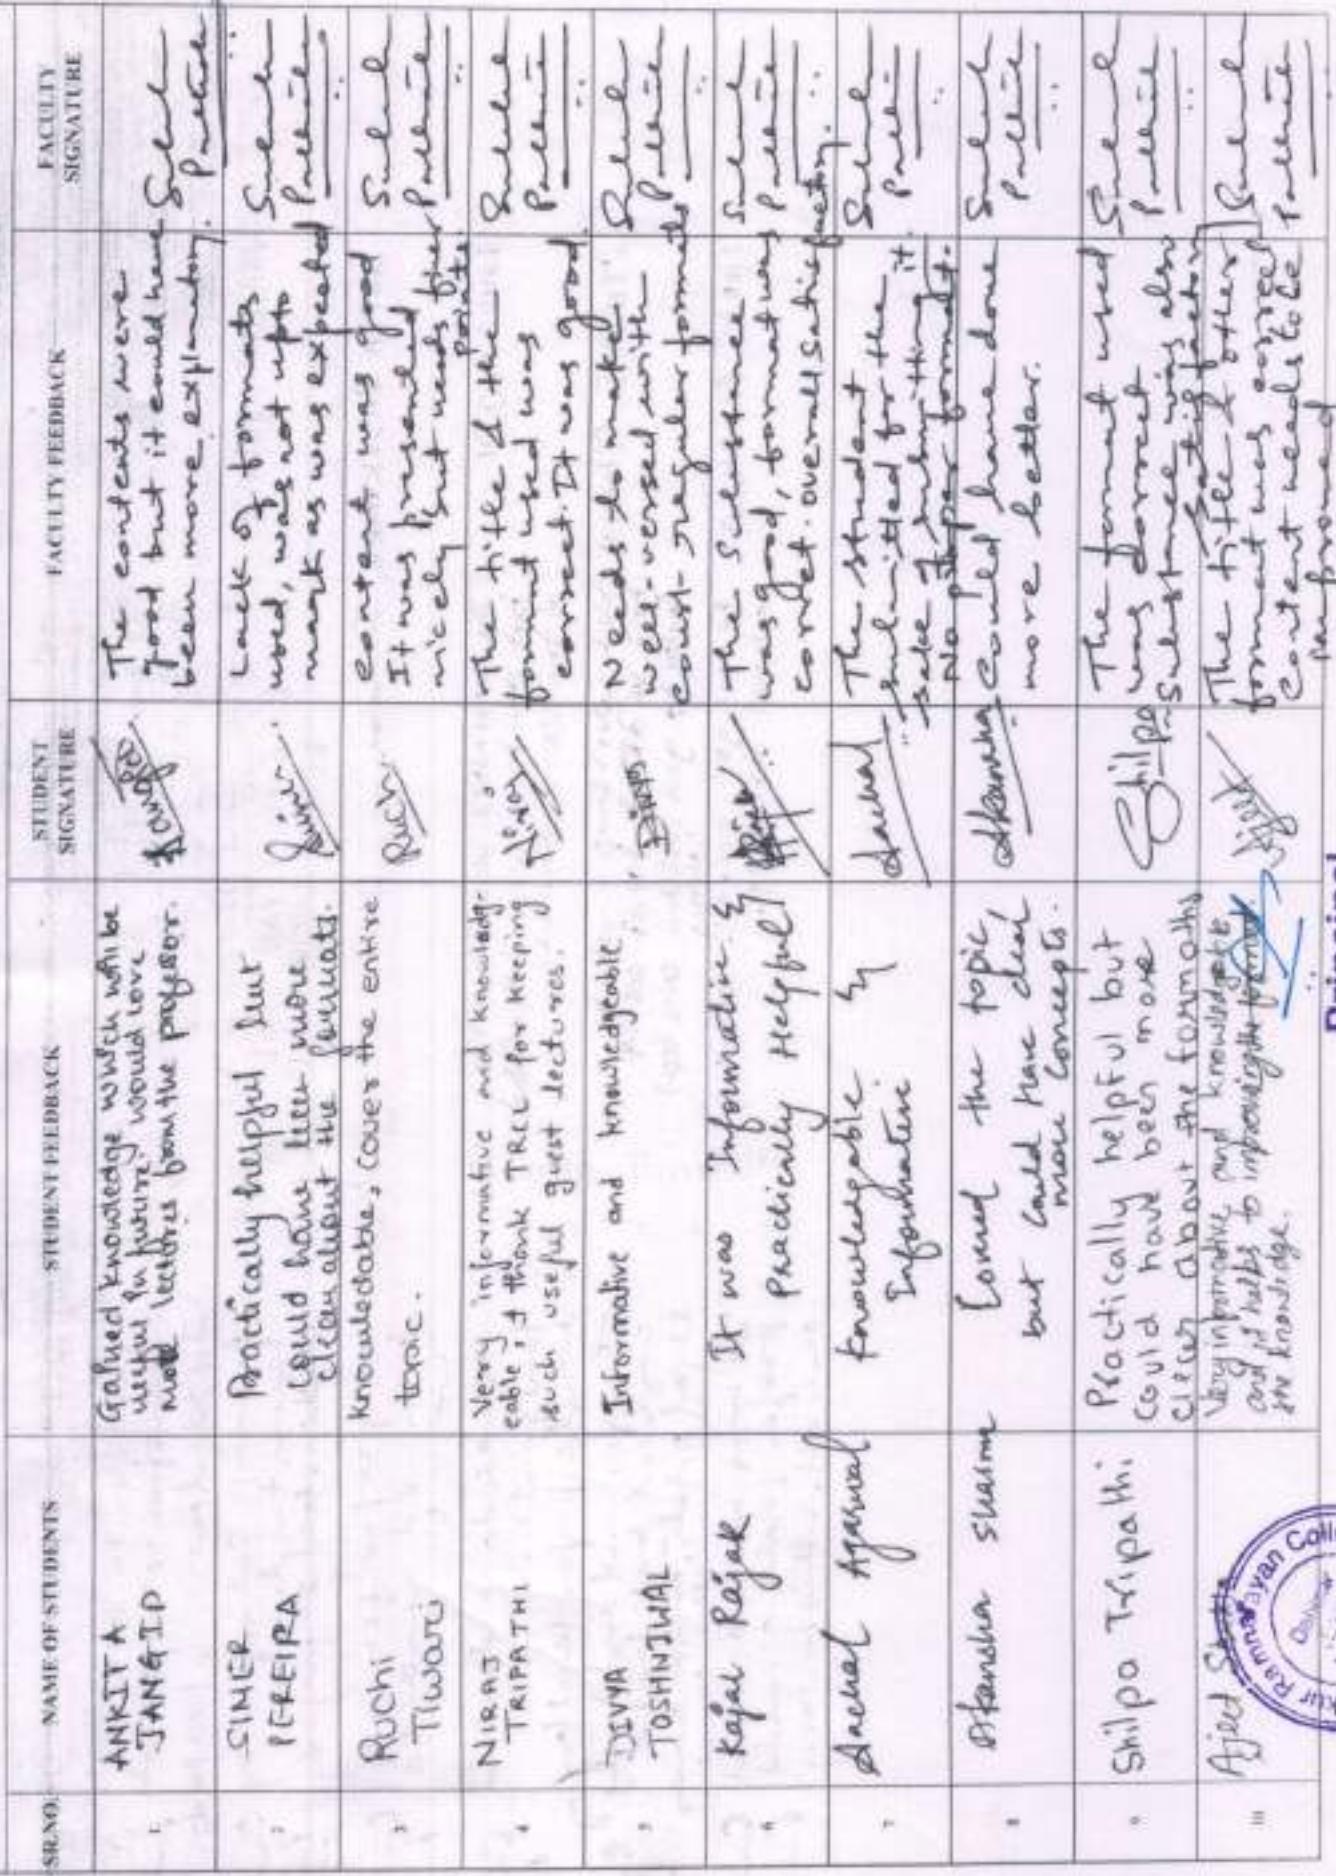 SR.NO. NAME OF STUDENTS STUDENT FEEDBACK STUDENT SIGNATURE FACULTY FEEDBACK FACULTY SIGNATURE
1.
ANKITA
JANGID
Gained knowledge which will be
useful in future. would love
more lectures from the professor.
The contents were
good but it could have
been more explanatory.
2
SIMER
PEREIRA
Practically helpful but
could have been more
clear about the formats.
Lack of formats
used, was not upto
mark as was expected
3
Ruchi
Tiwari
knowledable, cover the entire
topic.
Ruchi
content was good
It was presented
nicely but needs few
points
4
NIRAJ
TRIPATHI
Very informative and knowledg-
eable, I thank TRCL for keeping
such useful guest lectures.
Niraj
The title & the
format used was
correct. It was good.
5
DIVYA
TOSHNIWAL
Informative and knowledgeable
Divya
Needs to make
well-versed with
court regular formats
6
Kajal Rajak
It was Informative &
Practically Helpful
The substance
was good, format was
correct. overall satisfactory.
7
Aachal Agarwal
Knowledgable &
Informative
Aachal
The student
submitted for the
sake of submitting it.
No proper format.
8
Akansha Sharma
Covered the topic,
but could have clear
more concepts.
Akansha
Could have done
more better.
9
Shilpa Tripathi
Practically helpful but
could have been more
clear about the formats
Shilpa
The format used
was correct
substance was also
satisfactory
10
Ajeet
Very informative and knowledgeable
and it helps to improving the
the knowledge.
Ajeet
The title & other
format was correct
Content needs to be
Principal
Ramnarayan Coll